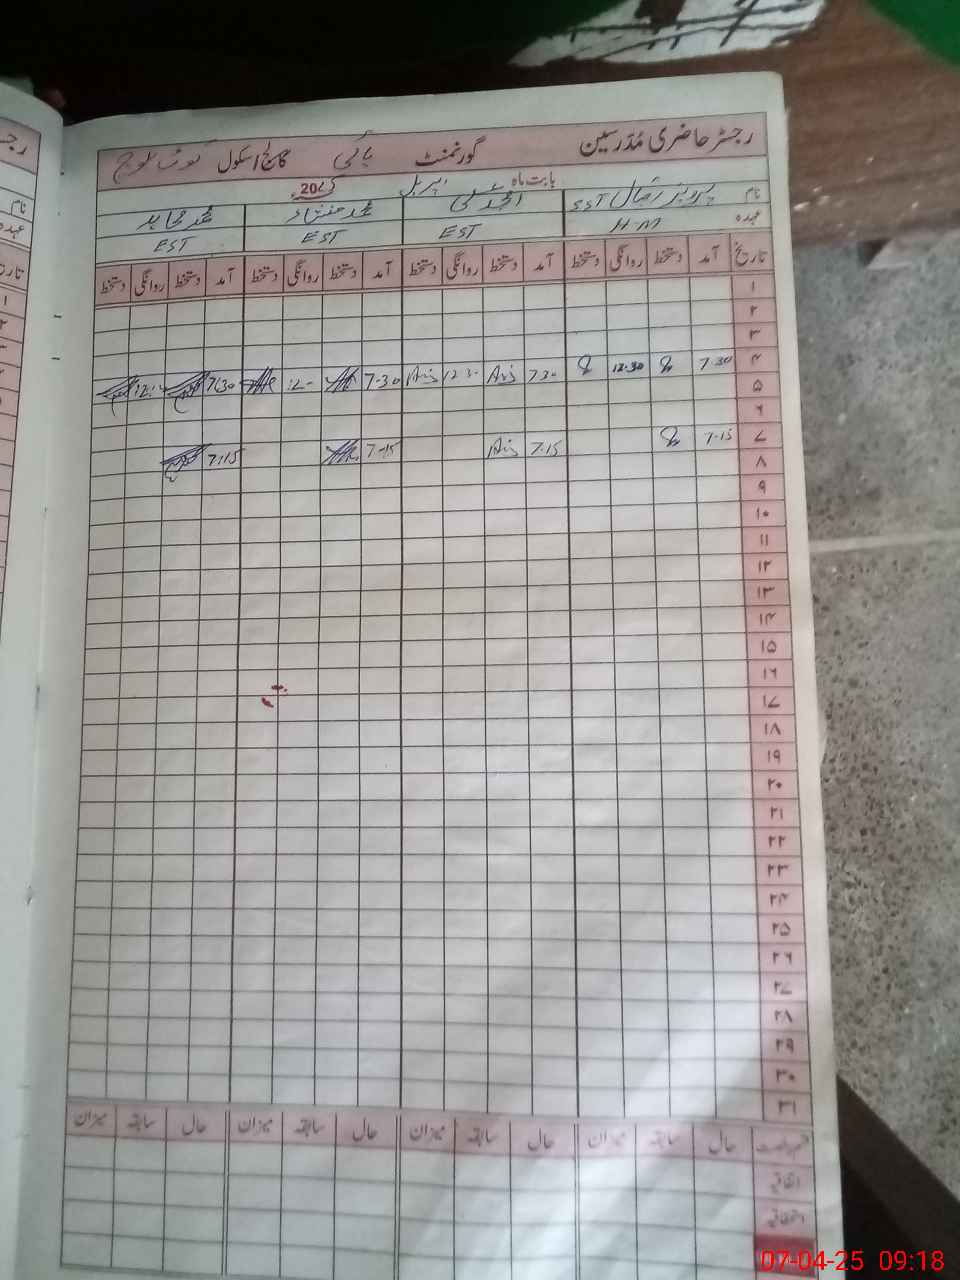 رجسٹر حاضری مُدرسین گورنمنٹ ہائی کالج/اسکول
بابت ماہ اپریل 2025
نام امجد علی محمد مجاہد
عہدہ H.M SST EST EST EST
تاریخ آمد دستخط روانگی دستخط آمد دستخط روانگی دستخط آمد دستخط روانگی دستخط آمد دستخط روانگی دستخط
۱
۲
۳
۴ 7.30 12.30 7.30 12.30 7.30 7.30
۵
۶
۷ 7.15 7.15 7.15 7.15
۸
۹
۱۰
۱۱
۱۲
۱۳
۱۴
۱۵
۱۶
۱۷
۱۸
۱۹
۲۰
۲۱
۲۲
۲۳
۲۴
۲۵
۲۶
۲۷
۲۸
۲۹
۳۰
۳۱
حال سابقہ میزان حال سابقہ میزان حال سابقہ میزان حال سابقہ میزان
اتفاقیہ
استحقاقیہ
07-04-25 09:18